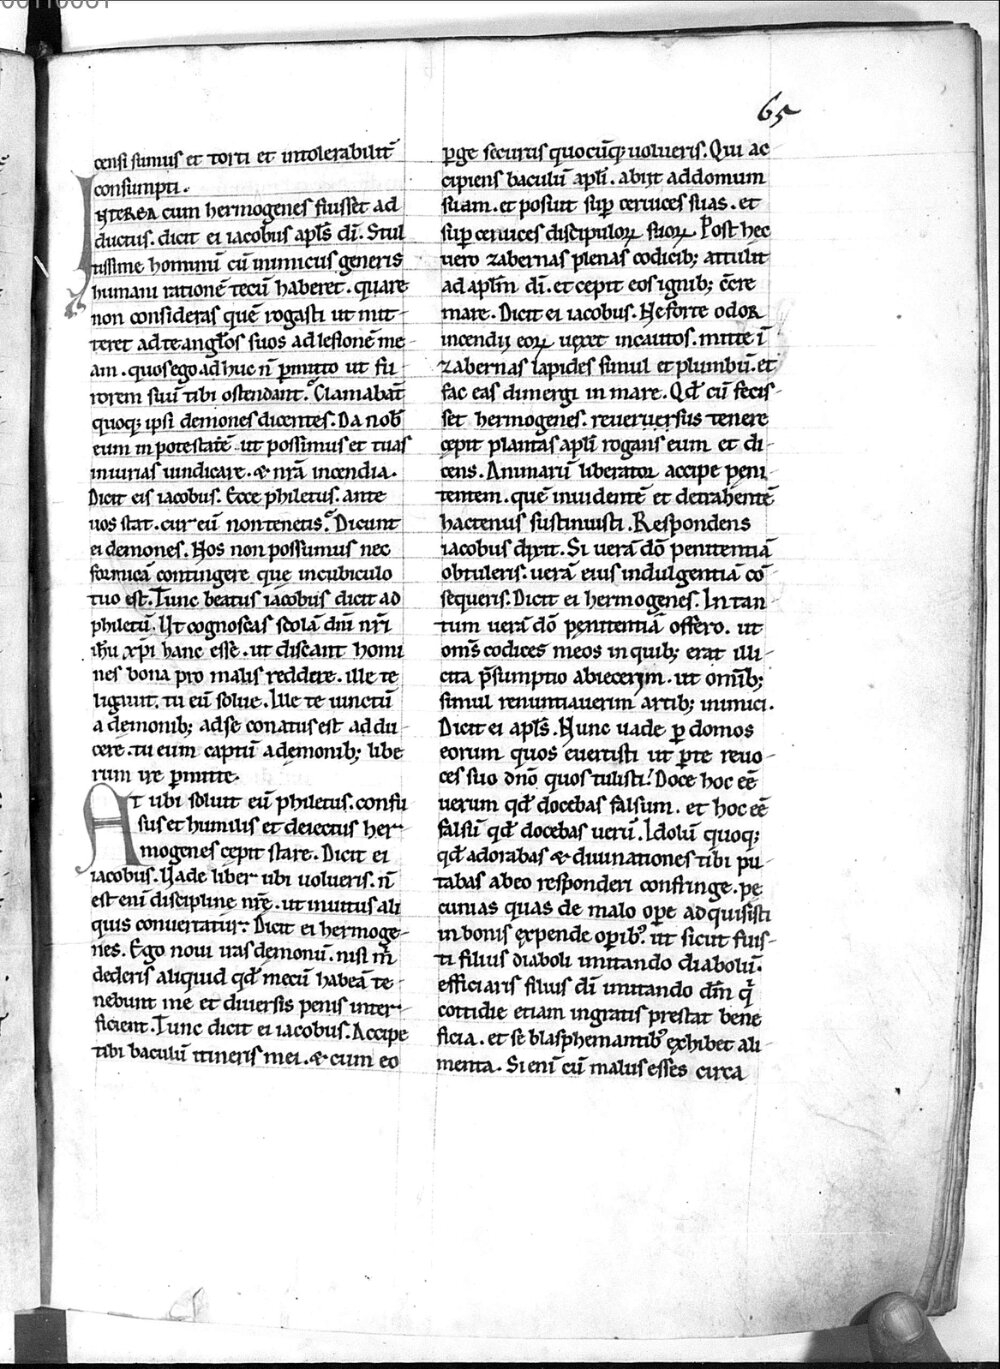 65
censi sumus et torti et intolerabilit̄
consumpti.
INTEREA cum hermogenes fuisset ad
ductus. dicit ei iacobus apl̄s dī. Stul
tissime hominū cū inimicus generis
humani rationē tecū haberet. quare
non consideras quē rogasti ut mit-
teret ad te angl̄os suos ad lesionē me-
am. quos ego ad huc n̄ ꝑmitto ut fu
rorem suū tibi ostendant. Clamabant̄
quoq; ipsi demones dicentes. Da nob̄
eum in potestatē ut possimus et tuas
iniurias uindicare. & nr̄a incendia.
Dicit eis iacobus. Ecce philetus. ante
uos stat. cur eū non tenetis. Dicunt
ei demones. Nos non possumus nec
formicā contingere que in cubiculo
tuo est. Tunc beatus iacobus dicit ad
philetū. Ut cognoscas scolā dn̄i nr̄i
ih̄u xp̄i hanc esse. ut discant homi
nes bona pro malis reddere. ille te
ligauit. tu eū solue. Ille te uinctū
a demonib; ad se conatus est addu
cere. tu eum captū a demonib; libe
rum ire ꝑmitte.
AT ubi soluit eū philetus. confu
sus et humilis et deiectus her-
mogenes cepit stare. Dicit ei
iacobus. Uade liber ubi uolueris. n̄
est enī discipline nr̄ę. ut inuitus ali
quis conuertatur. Dicit ei hermoge-
nes. Ego noui iras demonū. nisi m̄
dederis aliquid qđ mecū habeā te-
nebunt me et diuersis penis inter-
ficient. Tunc dicit ei iacobus. Accipe
tibi baculū itineris mei. & cum eo
ꝑge securus quocūq; uolueris. Qui ac
cipiens baculū apl̄i. abiit ad domum
suam. et posuit suꝑ ceruices suas. et
suꝑ ceruices discipuloꝝ suoꝝ. Post hec
uero zabernas plenas codicib; attulit
ad apl̄m dī. et cepit eos ignib; c̄cre
mare. Dicit ei iacobus. Ne forte odor
incendii eoꝝ uexet incautos. mitte ī
zabernas lapides simul et plumbū. et
fac eas dimergi in mare. Qđ cū fecis-
set hermogenes. reueruersus tenere
cepit plantas apl̄i rogans eum et di-
cens. Animarū liberator accipe peni-
tentem. quē inuidentē et detrahentē
hactenus sustinuisti. Respondens
iacobus dixit. Si uerā dō penitentiā
obtuleris. uerā eius indulgentiā cō-
sequeris. Dicit ei hermogenes. In tan-
tum uerā dō penitentiā offero. ut
om̄s codices meos in quib; erat illi-
cita p̄sumptio abiecerim. ut om̄ib;
simul renuntiauerim artib; inimici.
Dicit ei apl̄s. Nunc uade ꝑ domos
eorum quos euertisti ut ꝑ te reuo-
ces suo dn̄o quos tulisti. Doce hoc eē
uerum qđ docebas falsum. et hoc eē
falsū qđ docebas uerū. Idolū quoq;
qđ adorabas & diuinationes tibi pu-
tabas ab eo responderi confringe. pe-
cunias quas de malo oꝑe adquisisti
in bonis expende oꝑib;. ut sicut fuis-
ti filius diaboli imitando diabolū.
efficiaris filius dī imitando dm̄ q̄
cottidie etiam ingratis prestat bene
ficia. et se blasphemantib; exhibet ali-
menta. Si enī cū malus esses circa